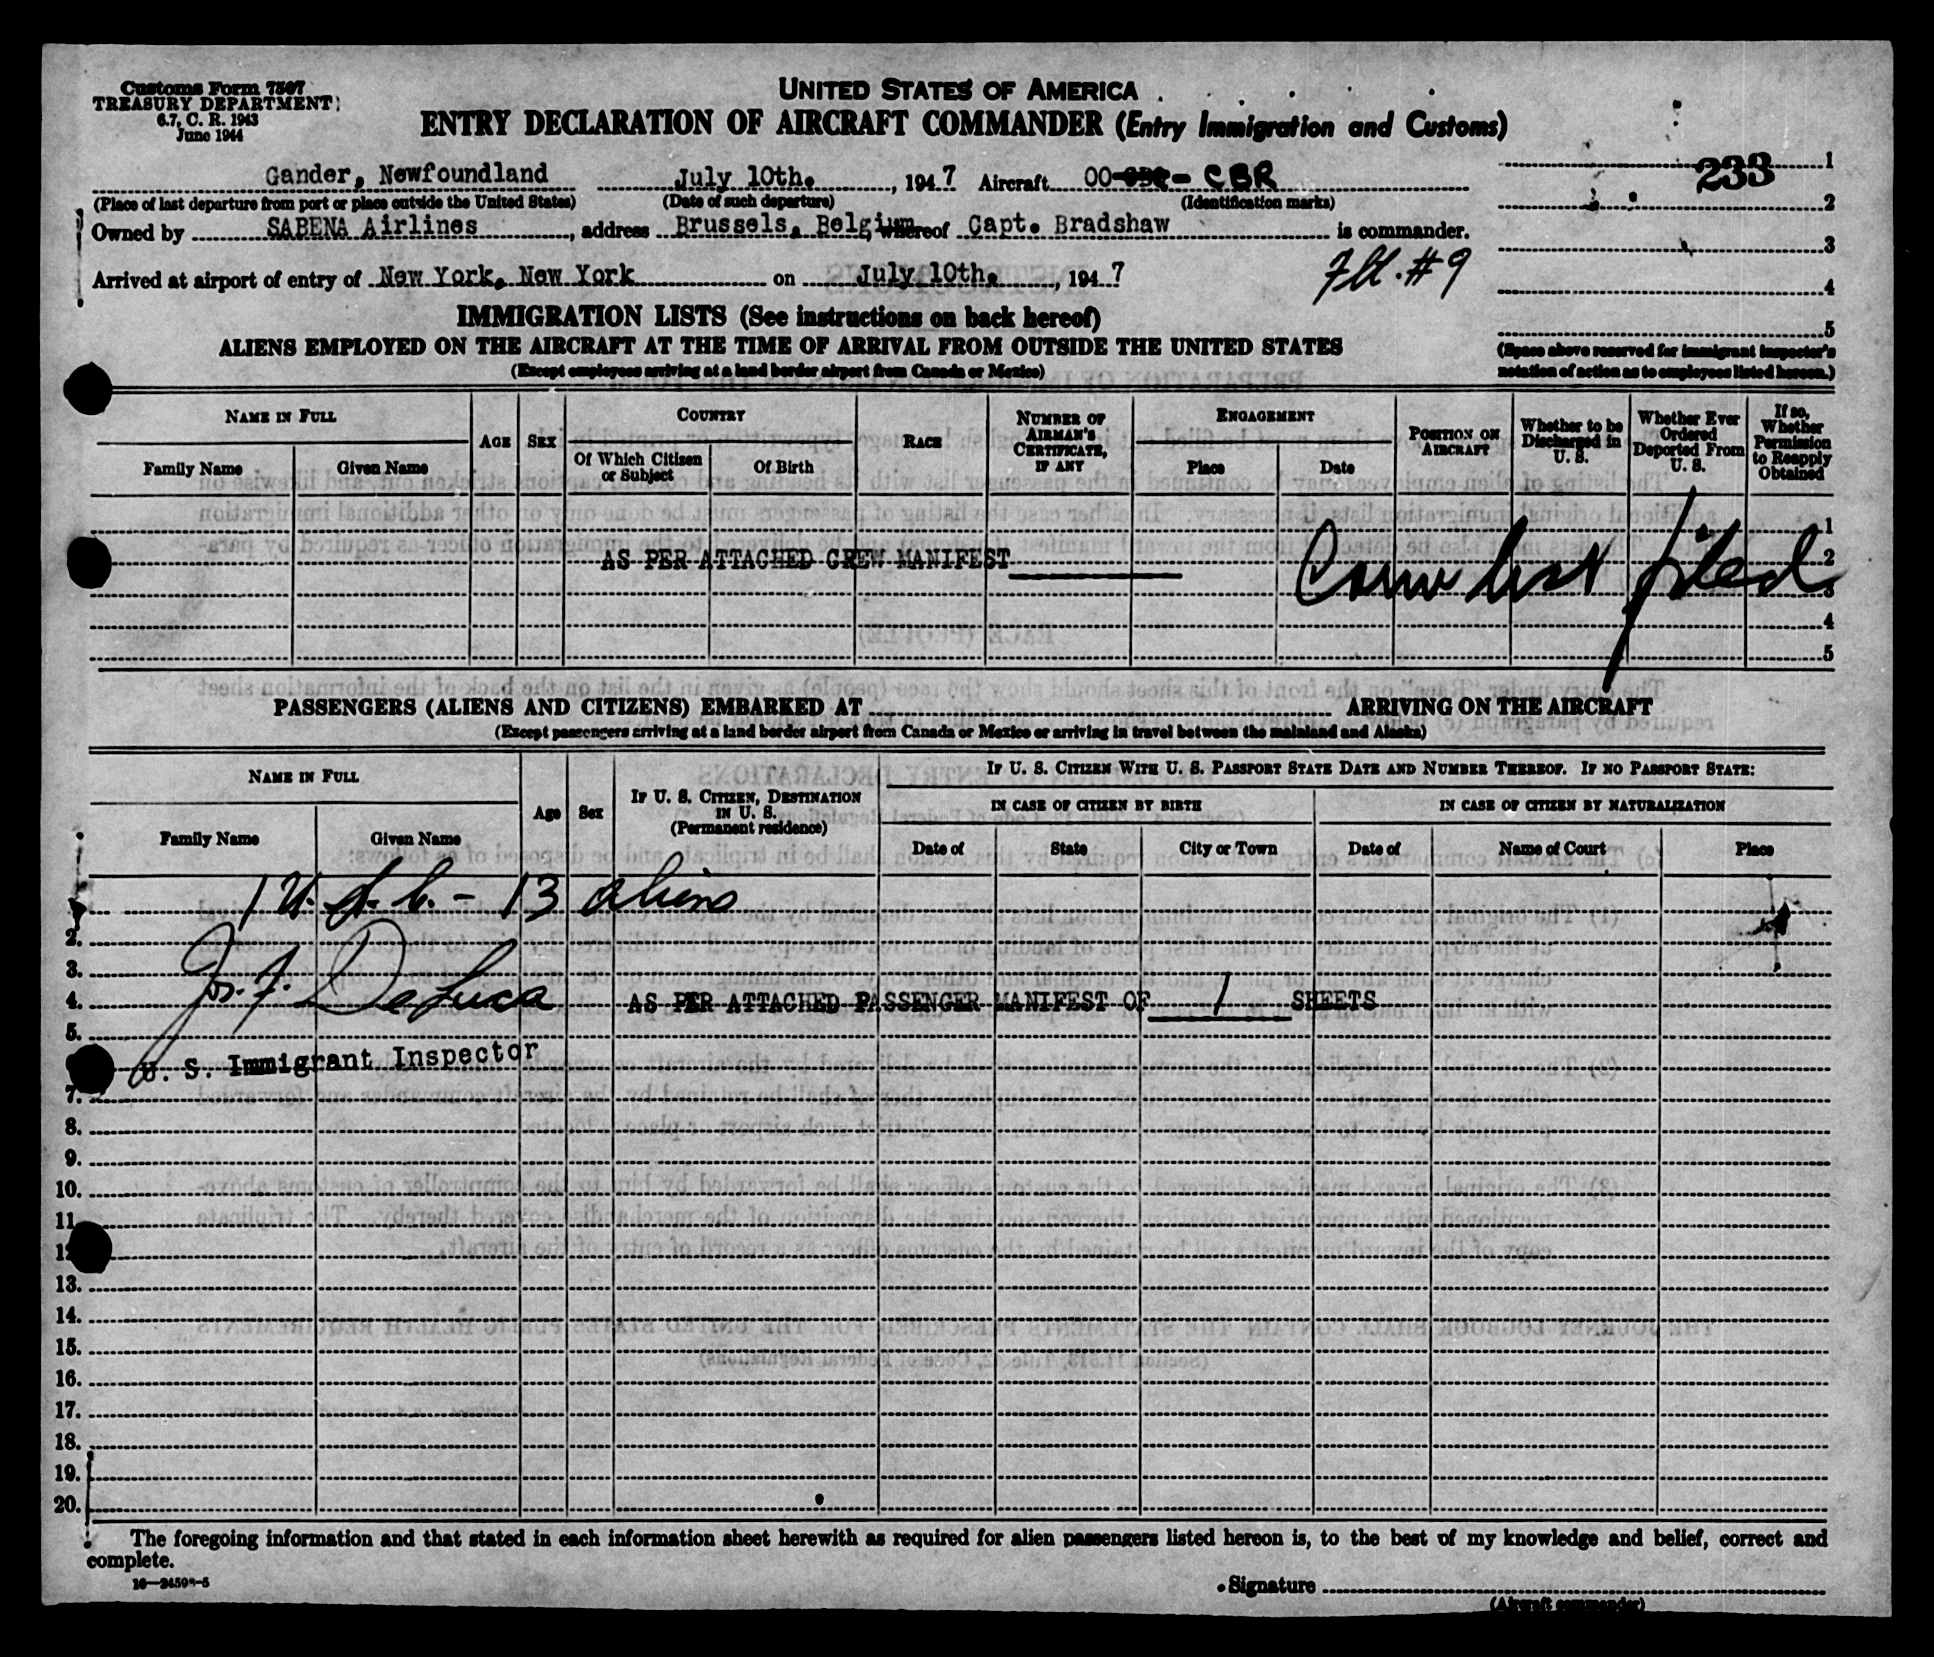 Customs Form 7507
TREASURY DEPARTMENT
6.7, C. R. 1943
June 1944
UNITED STATES OF AMERICA
ENTRY DECLARATION OF AIRCRAFT COMMANDER (Entry Immigration and Customs)
233
Gander, Newfoundland July 10th. , 1947 Aircraft OO- CBR
(Place of last departure from port or place outside the United States) (Date of such departure) (Identification marks)
Owned by SABENA Airlines , address Brussels, Belgium whereof Capt. Bradshaw is commander.
Arrived at airport of entry of New York, New York on July 10th. , 1947
Flt. #9
1
2
3
4
5
(Space above reserved for immigrant inspector's notation of action as to employees listed hereon.)
IMMIGRATION LISTS (See instructions on back hereof)
ALIENS EMPLOYED ON THE AIRCRAFT AT THE TIME OF ARRIVAL FROM OUTSIDE THE UNITED STATES
(Except employees arriving at a land border airport from Canada or Mexico)
NAME IN FULL
Family Name
Given Name
AGE
SEX
COUNTRY
Of Which Citizen or Subject
Of Birth
RACE
NUMBER OF AIRMAN'S CERTIFICATE, IF ANY
ENGAGEMENT
Place
Date
POSITION ON AIRCRAFT
Whether to be Discharged in U. S.
Whether Ever Ordered Deported From U. S.
If so, Whether Permission to Reapply Obtained
1
2
3
4
5
AS PER ATTACHED CREW MANIFEST
list filed
PASSENGERS (ALIENS AND CITIZENS) EMBARKED AT ARRIVING ON THE AIRCRAFT
(Except passengers arriving at a land border airport from Canada or Mexico or arriving in travel between the mainland and Alaska)
NAME IN FULL
Family Name
Given Name
Age
Sex
IF U. S. CITIZEN, DESTINATION IN U. S.
(Permanent residence)
IF U. S. CITIZEN WITH U. S. PASSPORT STATE DATE AND NUMBER THEREOF. IF NO PASSPORT STATE:
IN CASE OF CITIZEN BY BIRTH
IN CASE OF CITIZEN BY NATURALIZATION
Date of
State
City or Town
Date of
Name of Court
Place
1 U.S.C. - 13 aliens
2.
3.
Jos. F. DeLuca
4.
AS PER ATTACHED PASSENGER MANIFEST OF 1 SHEETS
5.
U. S. Immigrant Inspector
7.
8.
9.
10.
11.
12.
13.
14.
15.
16.
17.
18.
19.
20.
The foregoing information and that stated in each information sheet herewith as required for alien passengers listed hereon is, to the best of my knowledge and belief, correct and
complete.
Signature
(Aircraft commander)